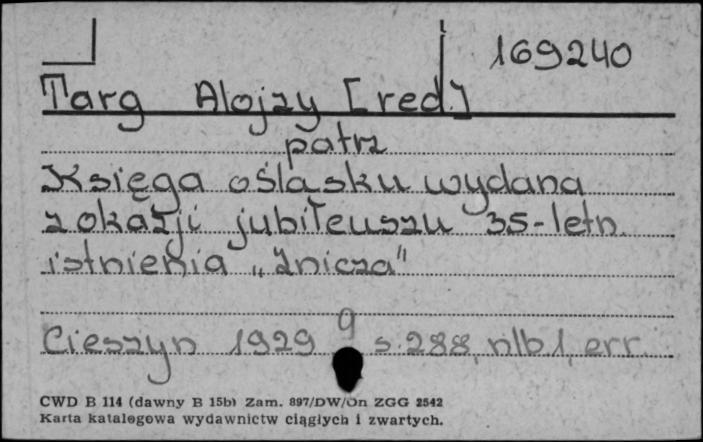 169240
Targ Alojzy [red.]
patrz
Księga o śląsku wydana
z okazji jubileuszu 35-letn.
istnienia „Znicza"
Cieszyn 1929 9 s. 288, nlb 1, err.
CWD B 114 (dawny B 15b) Zam. 897/DW/On ZGG 2542
Karta katalogowa wydawnictw ciągłych i zwartych.